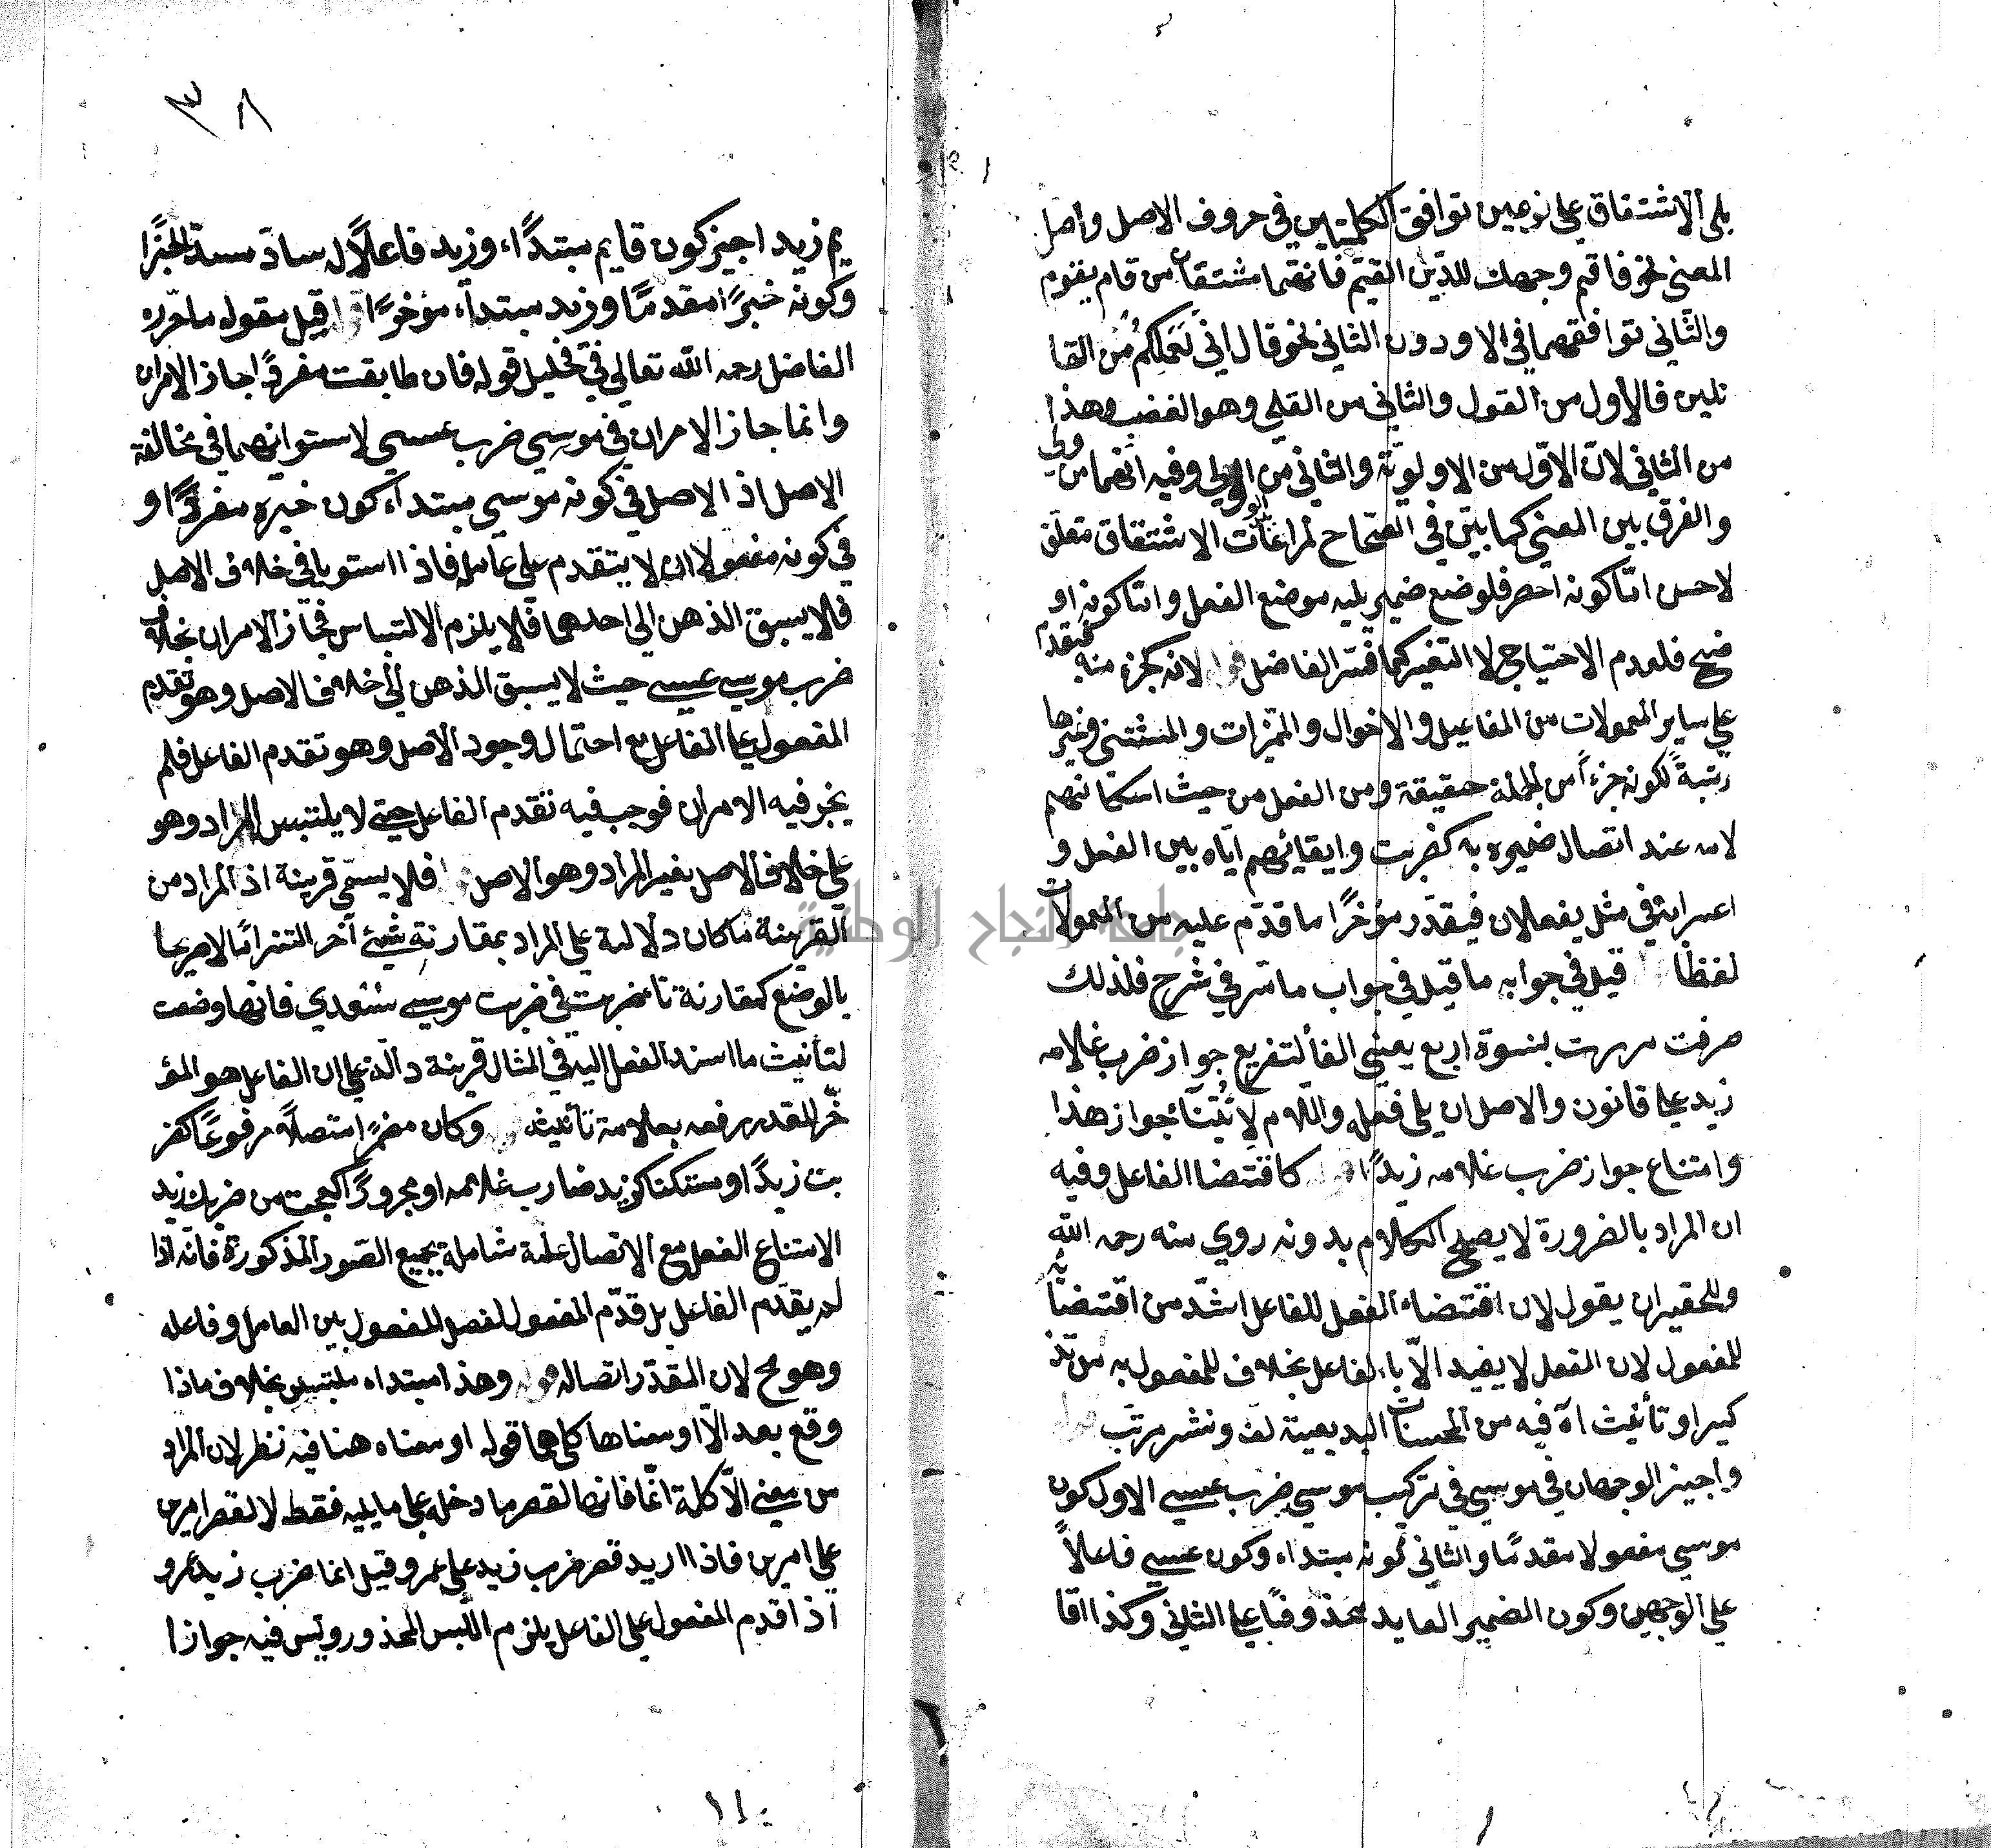 يلى الاشتقاق على نوعين توافق الكلمتين في حروف الاصل واصل
المعنى نحو فاقم وجهك للدّين القيّم فانهما مشتقان من قام يقوم
والثّاني توافقهما في الاو دون الثاني نحو قال انّي لعملكم من القا
لين فالاول من القول والثاني من القلى وهو الغضب وهذا
من الثاني لانّ الاوّل من الاولويّة والثاني من الولي وفيه انّهما من ولي
والفرق بين المعنى كما بيّن في الصّحاح لمراعات الاشتقاق متعلق
لاحسن امّا كونه احصر فلوضع ضمير يليه موضع الفعل وامّا كونه او
ضح فلعدم الاحتياج لا التغير كما فسّر الفاضل قوله لانه كجزء منه فيقدم
على ساير المعمولات من المفاعيل والاحوال والمميّزات والمستثنى وغيرها
رتبةً لكونه جزءاً من الجملة حقيقة ومن الفعل من حيث اسكانهم
لامه عند اتصال ضميره به كضربت وايقائهم ايّاه بين الفعل و
اعرابه في مثل يفعلان فيقدّر مؤخرًا ما قدّم عليه من المعمولات
لفظًا قيل في جوابه ما قيل في جواب ما مرّ في شرح فلذلك
صرفت مررت بنسوة اربع يعنى الفا لتفريع جواز ضرب غلامه
زيد على قانون والاصل ان يلى فعله واللام لا بتناء جواز هذا
وامتناع جواز ضرب غلامه زيدًا كاقتضا الفاعل وفيه
ان المراد بالضرورة لا يصلح الكلام بدونه روي منه رحمه الله
وللحقير ان يقول لان اقتضاء الفعل للفاعل اشدّ من اقتضائه
للمفعول لان الفعل لا يفيد الاّ بالفاعل بخلاف للمفعول به من تذ
كير او تأنيث اه فيه من المحسنات البديعية لف ونشر مرتّب قوله
واجيز الوجهان في موسى في تركيب موسى ضرب عيسى الاول كون
موسى مفعولا مقدمًا والثاني كونه مبتداء وكون عيسى فاعلاً
على الوجهين وكون الضمير العايد محذوفًا على الثاني وكذا اقا
٣٨
يم زيد اجيز كون قايم مبتدًاء وزيد فاعلاً له سادّ مسد الخبر
وكونه خبرًا مقدمًا وزيد مبتداًء مؤخرًا قيل مقوله ما حرّره
الفاضل رحمه الله تعالى في تحليل قوله فان طابقت مفردًا جاز الامران
وانما جاز الامران في موسى ضرب عيسى لاستوائهما في مخالفة
الاصل اذ الاصل في كونه موسى مبتداء كون خبره مفردًا و
في كونه مفعولا ان لا يتقدم على عامله فاذا استويا في خلاف الاصل
فلا يسبق الذهن الى احدهما فلا يلزم الالتباس فجاز الامران بخلاف
ضرب موسى عيسى حيث لا يسبق الذهن الى خلاف الاصل وهو تقدم
المفعول على الفاعل مع احتمال وجود الاصل وهو تقدم الفاعل فلم
يجز فيه الامران فوجب فيه تقدم الفاعل حتى لا يلتبس المراد وهو
على خلاف الاصل بغير المراد وهو الاصل فلا يسمّى قرينة اذ المراد من
القرينة ما كان دلالية على المراد بمقارنة شيئ آخر التنزامًا لا صريحا
بالوضع كمقارنة تا ضربت في ضربت موسى سعدي فانها وضعت
لتأنيث ما اسند الفعل اليه في المثال قرينة دالّة على ان الفاعل هو المؤ
خّر المقدر رفعه بعلامة تأنيثه وكان مضمرًا متصلاً مرفوعًا كضر
بت زيدًا او مستكنًا كزيد ضارب غلامه او مجرورًا كعجبت من ضربك زيد
الامتناع الفعل مع الاتصال علّة شاملة بجميع الصّور المذكورة فانّه اذا
لم يقدّم الفاعل بل قدّم المفعول لفصل المفعول بين العامل وفاعله
وهو مح لان المقدّر اتصاله قوله وهذا مبتداء ملتبس بخلاف ماذا
وقع بعد الاّ او معناها كما هما قوله او معناه هنا فيه نظر لان المراد
من معنى الاّ كلمة انّما فانها لقصر ما دخله على ما يليه فقط لا لقصر امرين
على امرين فاذا اريد قصر ضرب زيد على عمرو قيل انما ضرب زيد عمرو
اذا قدم المفعول على الفاعل يلزم اللبس المحذور وليس فيه جواز ا
جامعة النجاح الوطنية